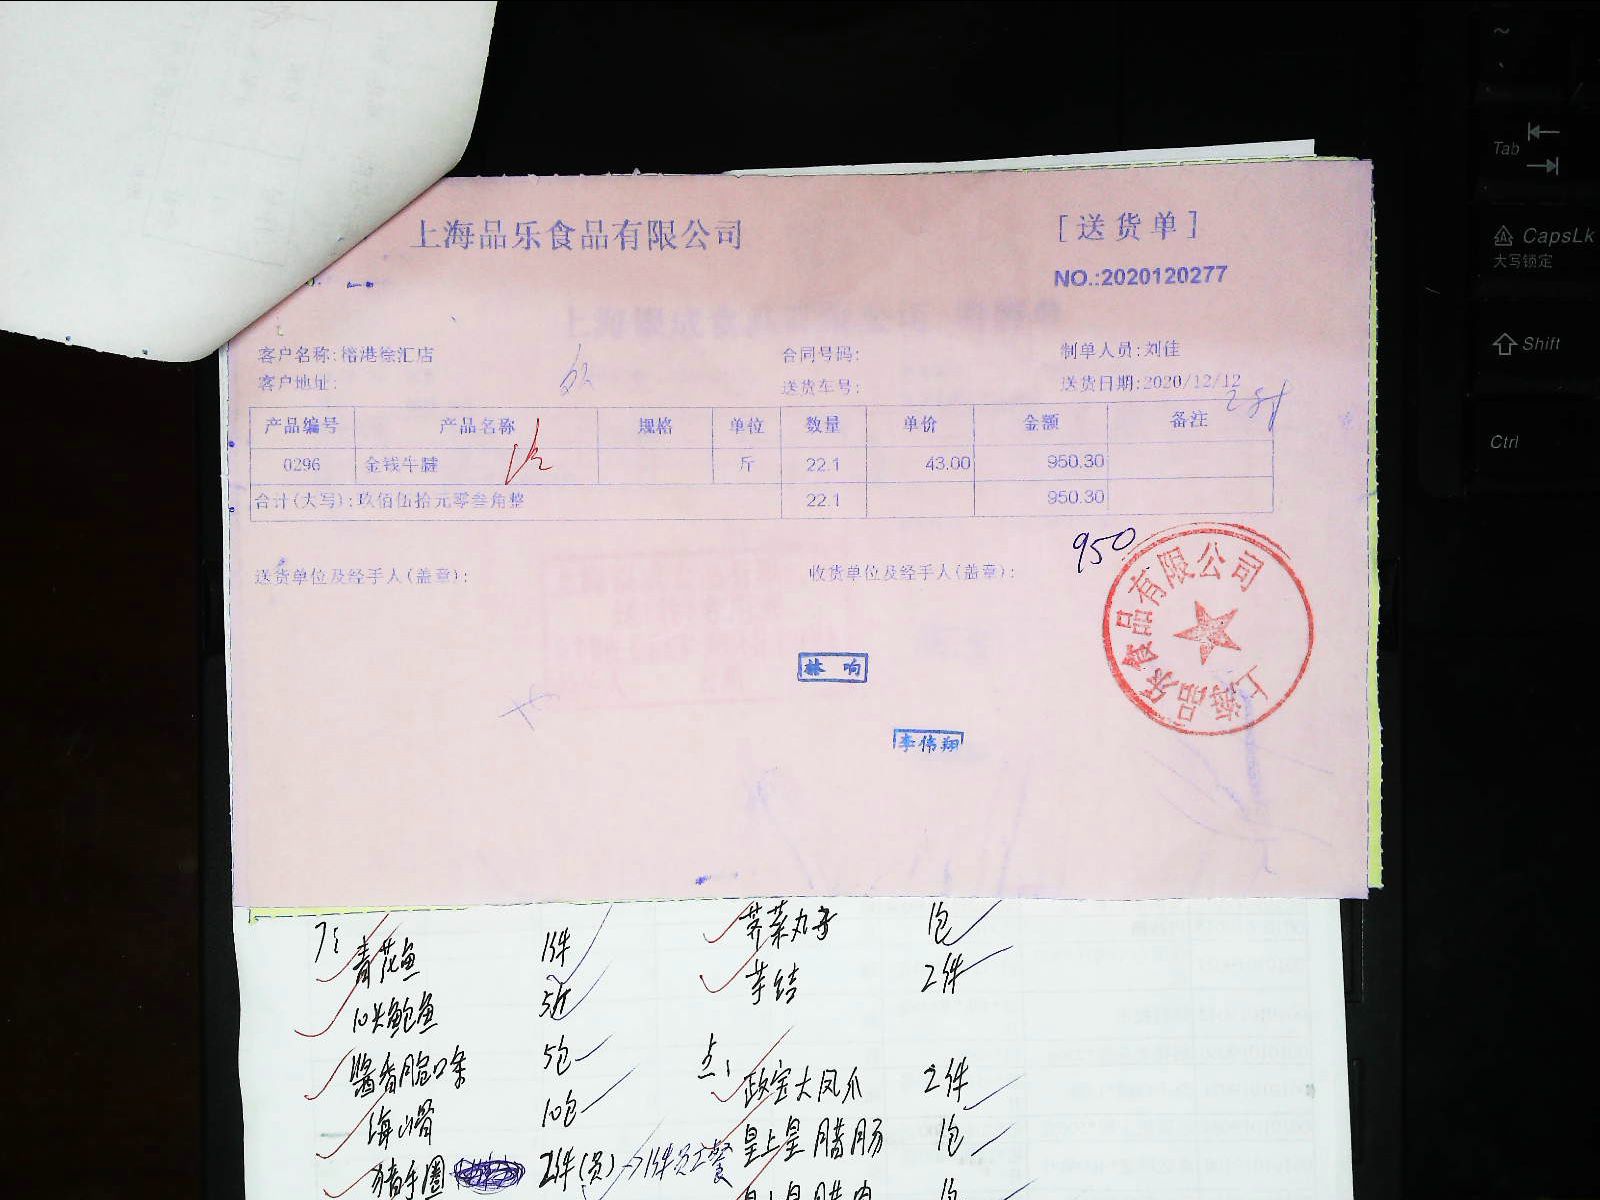 上海品乐食品有限公司
[送货单]
NO.:2020120277
客户名称:榕港徐汇店
合同号码:
制单人员:刘佳
客户地址:
送货车号:
送货日期:2020/12/12
产品编号 产品名称 规格 单位 数量 单价 金额 备注
0296 金钱牛腱 斤 22.1 43.00 950.30
合计(大写):玖佰伍拾元零叁角整 22.1 950.30
950
送货单位及经手人(盖章):
收货单位及经手人(盖章):
上海品乐食品有限公司
林响
李伟翔
青花鱼 1件
荠菜丸子 1包
10头鲍鱼 5斤
芋结 2件
酱香脆口条 5包
点:
政宝大凤爪 2件
海山骨 10包
皇上皇腊肠 1包
猪手圈 2件(员)→1件员工餐
Tab
CapsLk
大写锁定
Shift
Ctrl